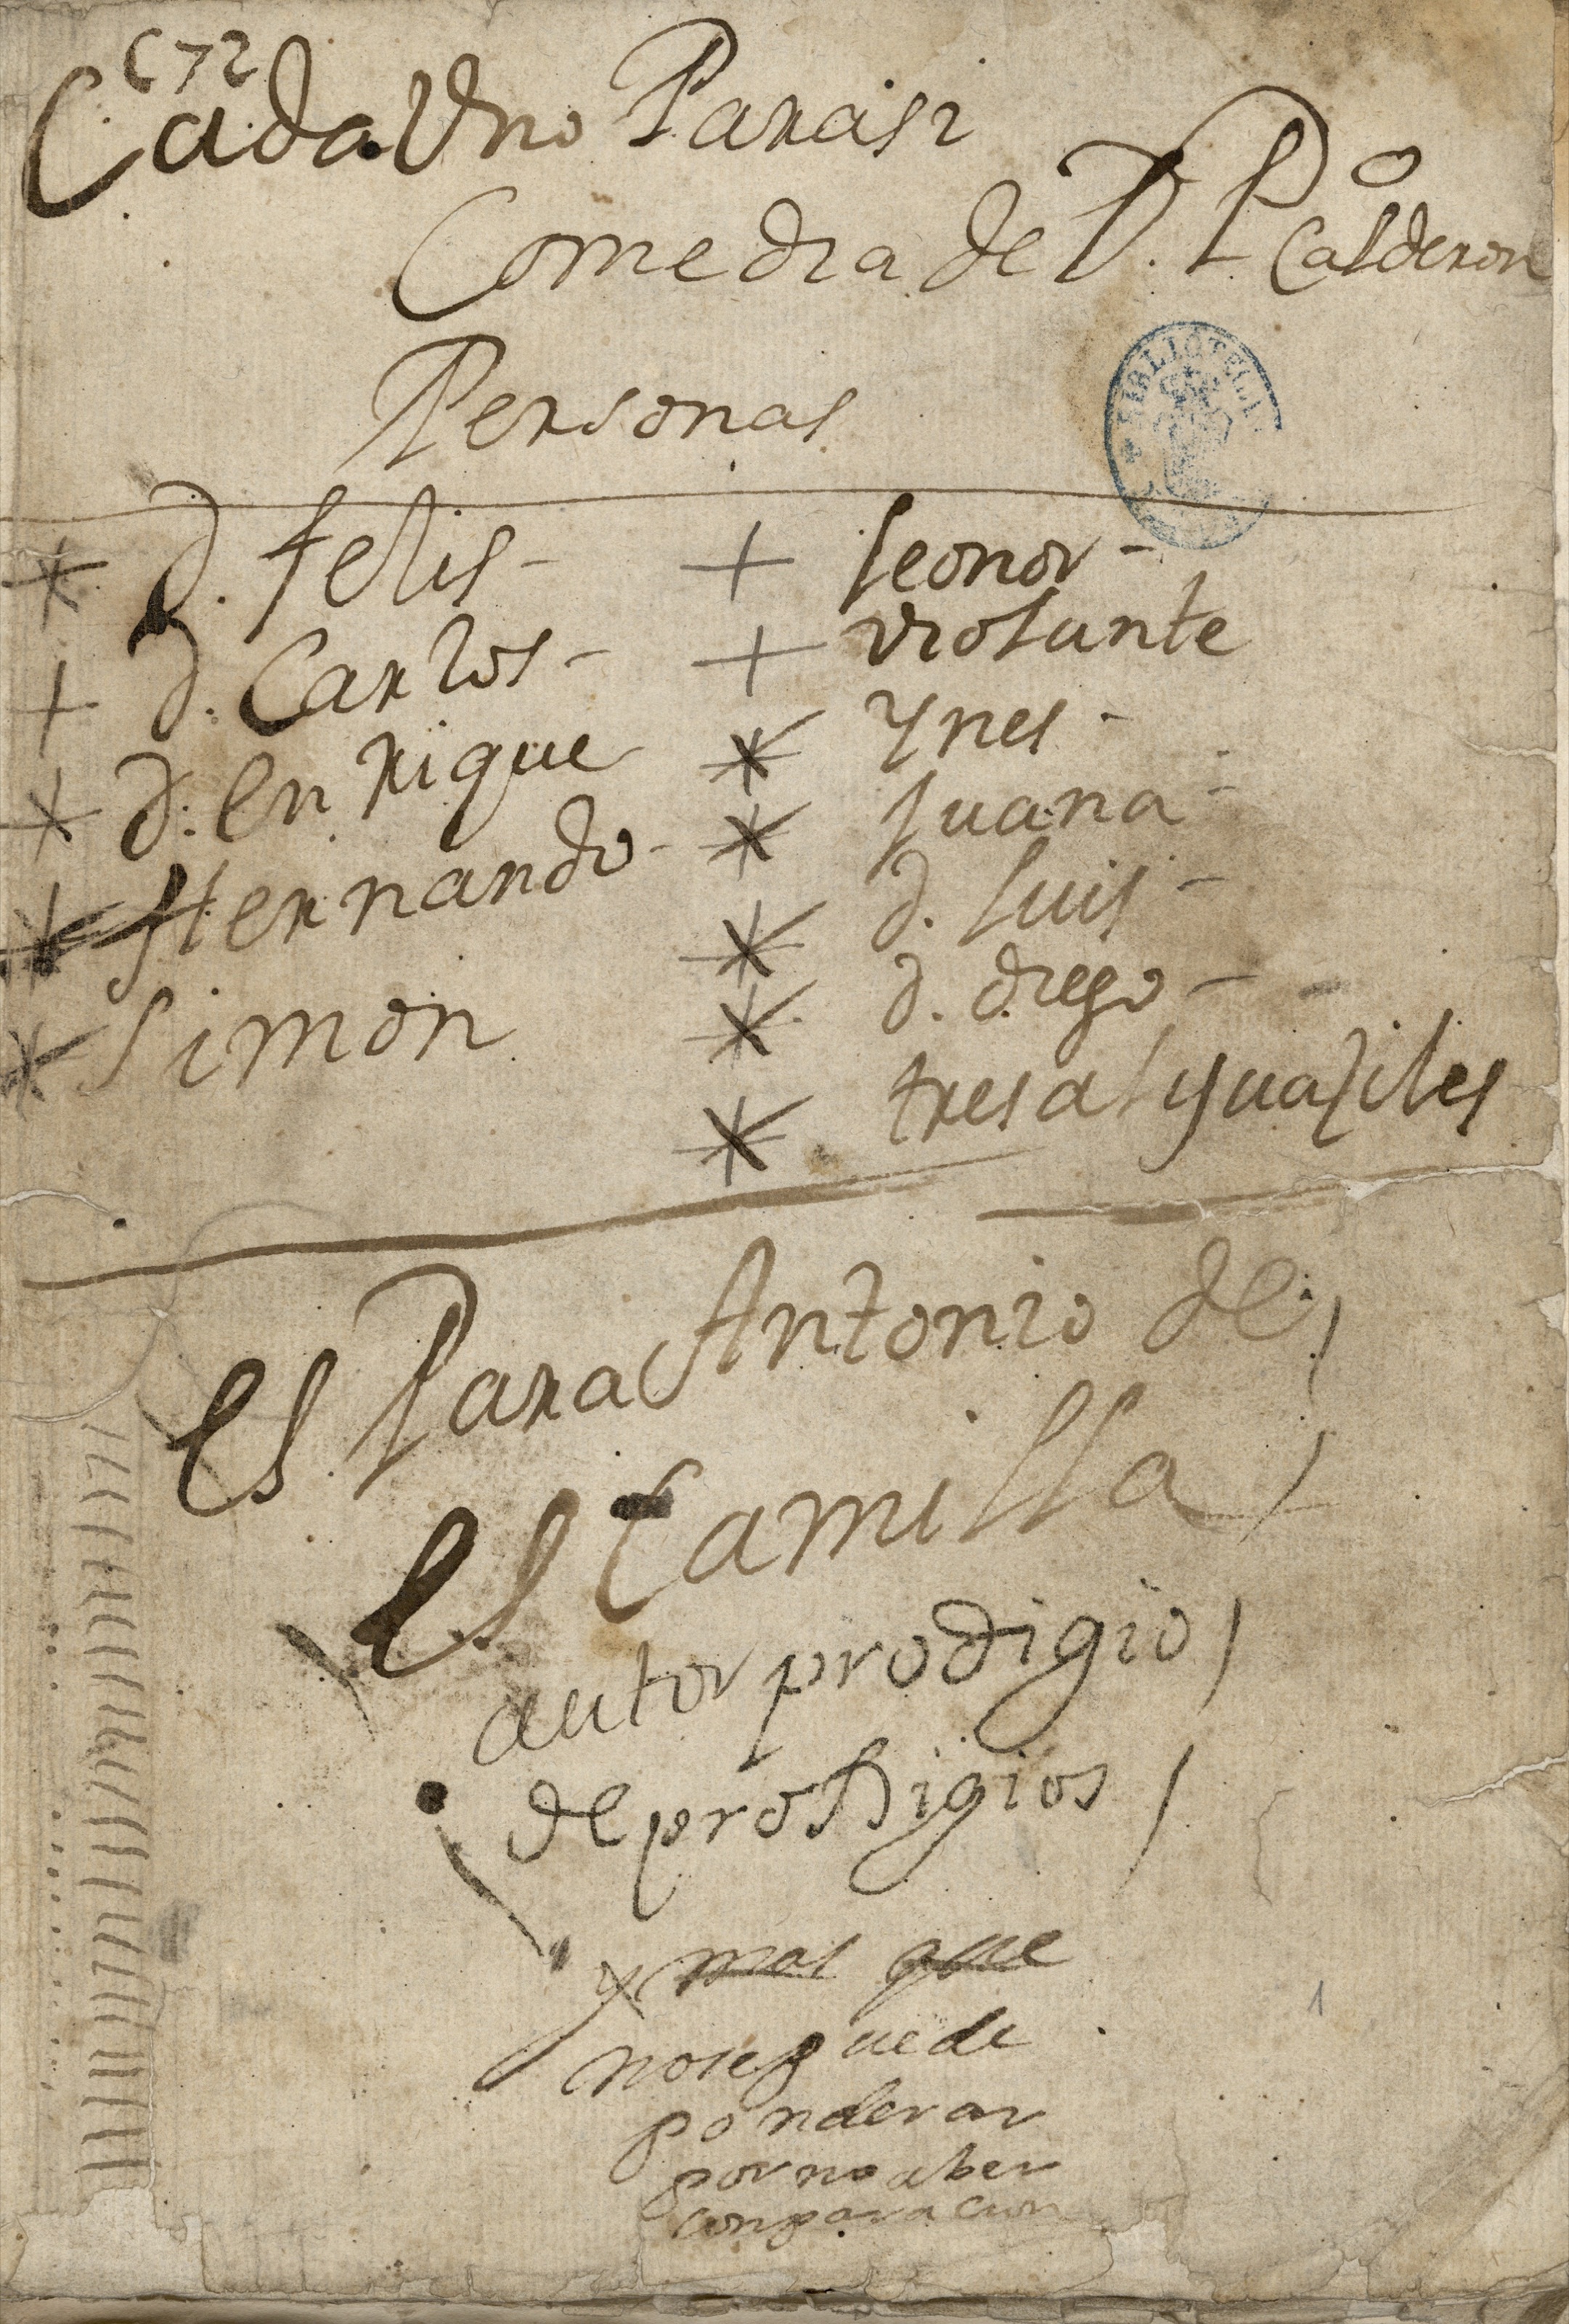 C72
Cada Uno Parasi
Comedia de D. Po Calderon
Personas
BIBLIOTECA
d. felis -
d. Carlos -
d. enrrique
Hernando -
Simon
leonor -
violante
ynes -
Juana -
d. luis -
d. diego -
tres alguaziles
es Para Antonio de
escamilla
autor prodigio
de prodigios
y mas que
nose puede
ponderar
por no aber
conparacion
1